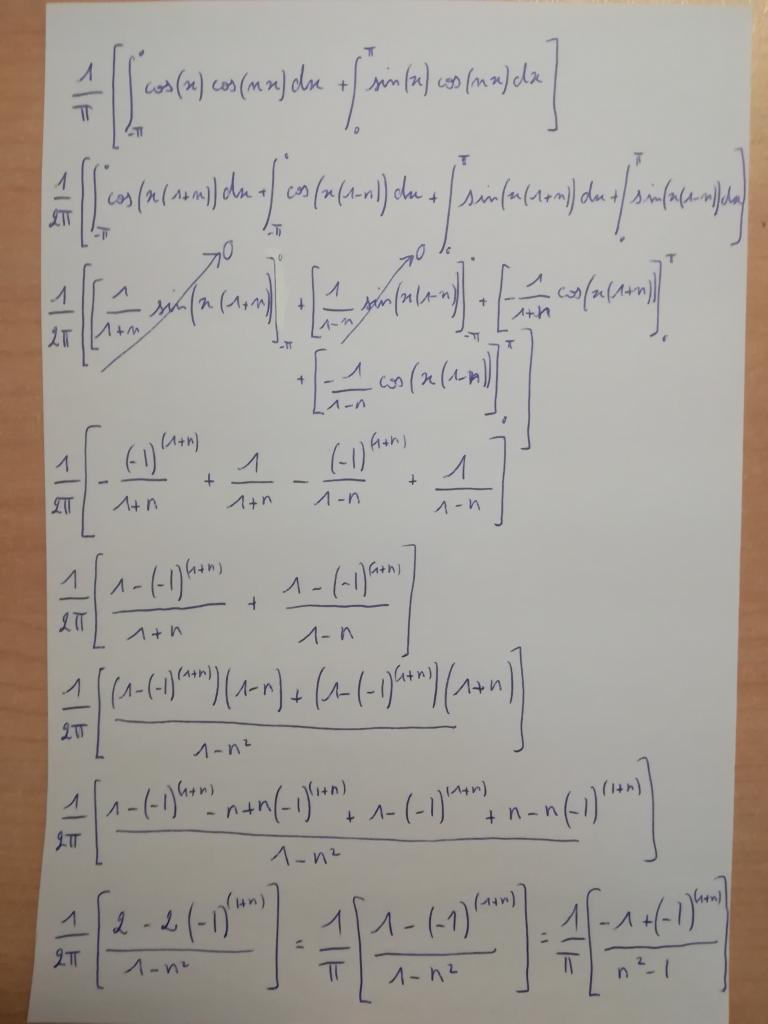 1/π [∫_{-π}^{0} cos(x) cos(nx) dx + ∫_{0}^{π} sin(x) cos(nx) dx]
1/2π [∫_{-π}^{0} cos(x(1+n)) dx + ∫_{-π}^{0} cos(x(1-n)) dx + ∫_{0}^{π} sin(x(1+n)) dx + ∫_{0}^{π} sin(x(1-n)) dx]
1/2π [[1/(1+n) sin(x(1+n))]_{-π}^{0} → 0 + [1/(1-n) sin(x(1-n))]_{-π}^{0} → 0 + [-1/(1+n) cos(x(1+n))]_{0}^{π}
+ [-1/(1-n) cos(x(1-n))]_{0}^{π}]
1/2π [- (-1)^{(1+n)}/(1+n) + 1/(1+n) - (-1)^{(1+n)}/(1-n) + 1/(1-n)]
1/2π [(1-(-1)^{(1+n)})/(1+n) + (1-(-1)^{(1+n)})/(1-n)]
1/2π [((1-(-1)^{(1+n)})(1-n) + (1-(-1)^{(1+n)})(1+n))/(1-n²)]
1/2π [(1-(-1)^{(1+n)} - n + n(-1)^{(1+n)} + 1-(-1)^{(1+n)} + n - n(-1)^{(1+n)})/(1-n²)]
1/2π [(2 - 2(-1)^{(1+n)})/(1-n²)] = 1/π [(1-(-1)^{(1+n)})/(1-n²)] = 1/π [(-1+(-1)^{(1+n)})/(n²-1)]